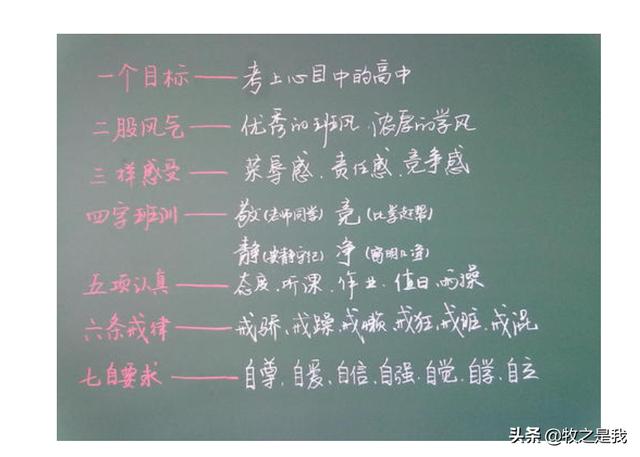 一个目标——考上心目中的高中
二股风气——优秀的班风、浓厚的学风
三样感受——荣辱感、责任感、竞争感
四字班训——敬(老师同学) 竞(比学赶帮)
静(安静守纪) 净(窗明几净)
五项认真——态度、听课、作业、值日、两操
六条戒律——戒骄、戒躁、戒懒、戒狂、戒脏、戒混
七自要求——自尊、自爱、自信、自强、自觉、自学、自立
头条 @牧之是我